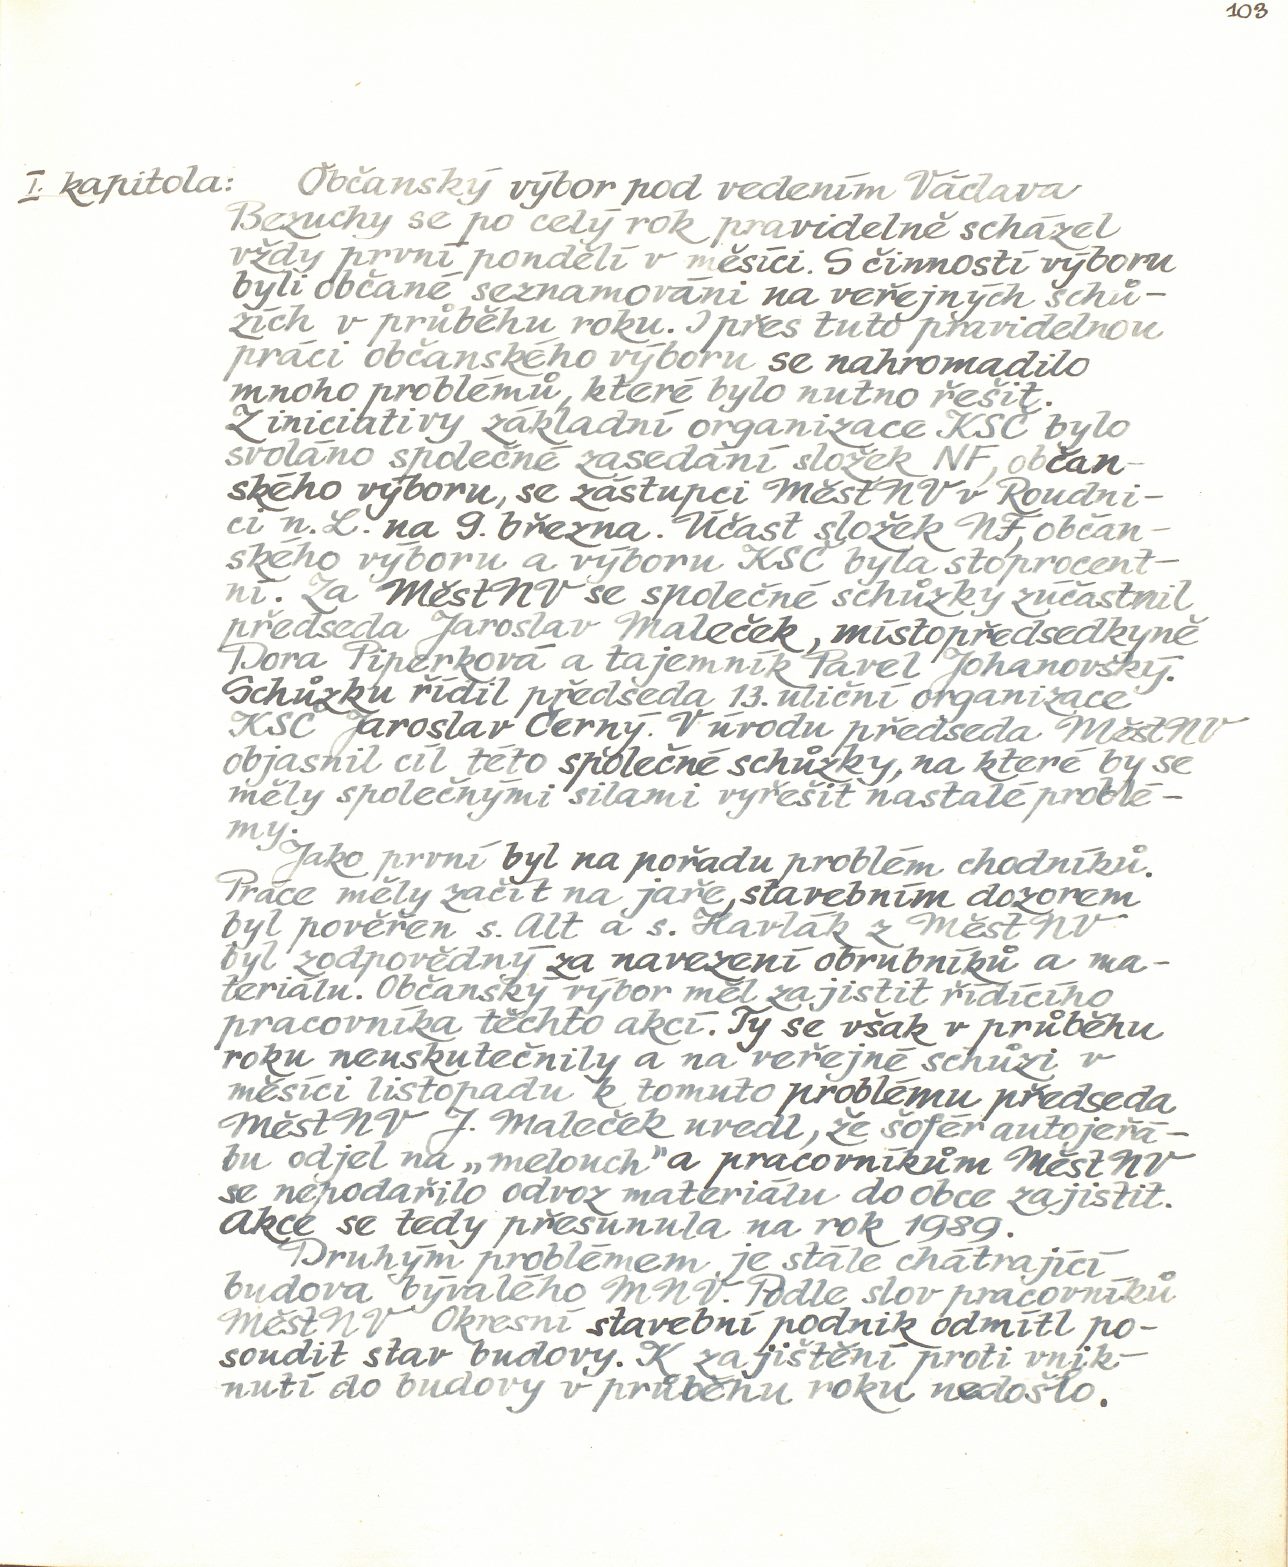 103
I. kapitola: Občanský výbor pod vedením Václava
Bezuchy se po celý rok pravidelně scházel
vždy první pondělí v měsíci. S činností výboru
byli občané seznamováni na veřejných schů-
zích v průběhu roku. I přes tuto pravidelnou
práci občanského výboru se nahromadilo
mnoho problémů, které bylo nutno řešit.
Z iniciativy základní organizace KSČ bylo
svoláno společné zasedání složek NF, občan-
ského výboru, se zástupci MěstNV v Roudni-
ci n. L. na 9. března. Účast složek NF, občan-
ského výboru a výboru KSČ byla stoprocent-
ní. Za MěstNV se společné schůzky zúčastnil
předseda Jaroslav Maleček, místopředsedkyně
Dora Piperková a tajemník Pavel Johanovský.
Schůzku řídil předseda 13. uliční organizace
KSČ Jaroslav Černý. V úvodu předseda MěstNV
objasnil cíl této společné schůzky, na které by se
měly společnými silami vyřešit nastalé problé-
my.
Jako první byl na pořadu problém chodníků.
Práce měly začít na jaře, stavebním dozorem
byl pověřen s. Alt a s. Havlák z MěstNV
byl zodpovědný za navezení obrubníků a ma-
teriálu. Občanský výbor měl zajistit řídícího
pracovníka těchto akcí. Ty se však v průběhu
roku neuskutečnily a na veřejné schůzi v
měsíci listopadu k tomuto problému předseda
MěstNV J. Maleček uvedl, že šofér autojeřá-
bu odjel na „melouch" a pracovníkům MěstNV
se nepodařilo odvoz materiálu do obce zajistit.
Akce se tedy přesunula na rok 1989.
Druhým problémem je stále chátrající
budova bývalého MNV. Podle slov pracovníků
MěstNV Okresní stavební podnik odmítl po-
soudit stav budovy. K zajištění proti vnik-
nutí do budovy v průběhu roku nedošlo.